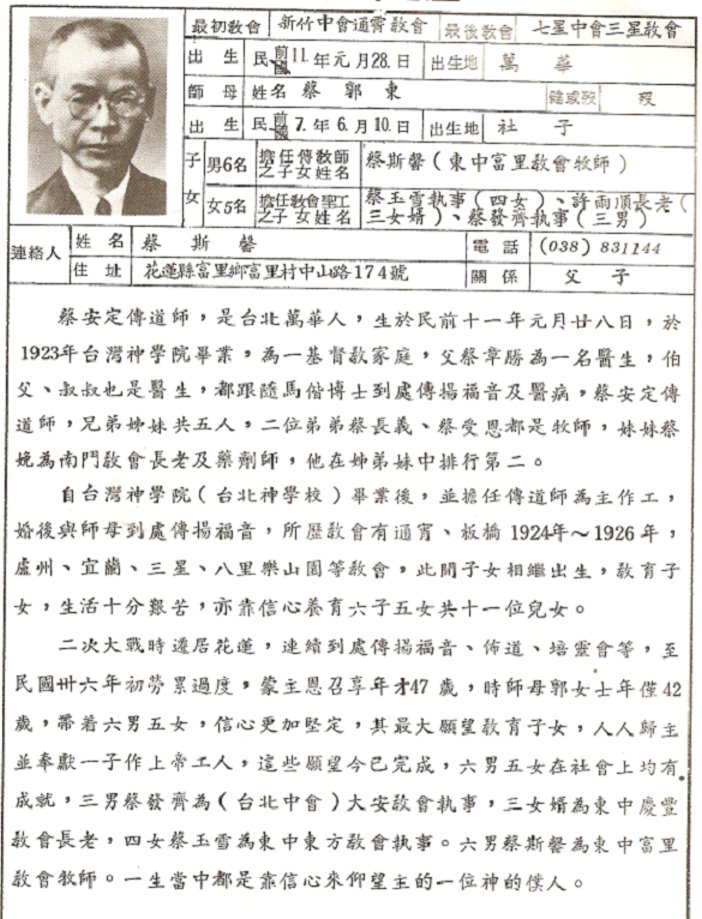 最初敎會 新竹中會通霄敎會 最後敎會 七星中會三星敎會
出生 民前國11.年元月28.日 出生地 萬華
師母 姓名 蔡郭東 健或歿 歿
出生 民前國7.年6.月10.日 出生地 社子
子女 男6名 擔任傳敎師之子女姓名 蔡斯馨(東中富里敎會牧師)
女5名 擔任敎會聖工之子女姓名 蔡玉雪執事(四女)、許雨順長老(三女婿)、蔡發齊執事(三男)
連絡人 姓名 蔡斯馨 電話 (038)831144
住址 花蓮縣富里鄉富里村中山路174號 關係 父子
蔡安定傳道師,是台北萬華人,生於民前十一年元月廿八日,於
1923年台灣神學院畢業,為一基督敎家庭,父蔡章勝為一名醫生,伯
父、叔叔也是醫生,都跟隨馬偕博士到處傳揚福音及醫病,蔡安定傳
道師,兄弟姊妹共五人,二位弟弟蔡長義、蔡受恩都是牧師,妹妹蔡
娩為南門敎會長老及藥劑師,他在姊弟妹中排行第二。
自台灣神學院(台北神學校)畢業後,並擔任傳道師為主作工,
婚後與師母到處傳揚福音,所歷敎會有通宵、板橋1924年~1926年,
盧州、宜蘭、三星、八里樂山園等敎會,此間子女相繼出生,敎育子
女,生活十分艱苦,亦靠信心養育六子五女共十一位兒女。
二次大戰時遷居花蓮,連續到處傳揚福音、佈道、培靈會等,至
民國卅六年初勞累過度,蒙主恩召享年才47歲,時師母郭女士年僅42
歲,帶着六男五女,信心更加堅定,其最大願望敎育子女,人人歸主
並奉獻一子作上帝工人,這些願望今已完成,六男五女在社會上均有
成就,三男蔡發齊為(台北中會)大安敎會執事,三女婿為東中慶豐
敎會長老,四女蔡玉雪為東中東方敎會執事。六男蔡斯馨為東中富里
敎會牧師。一生當中都是靠信心來仰望主的一位神的僕人。